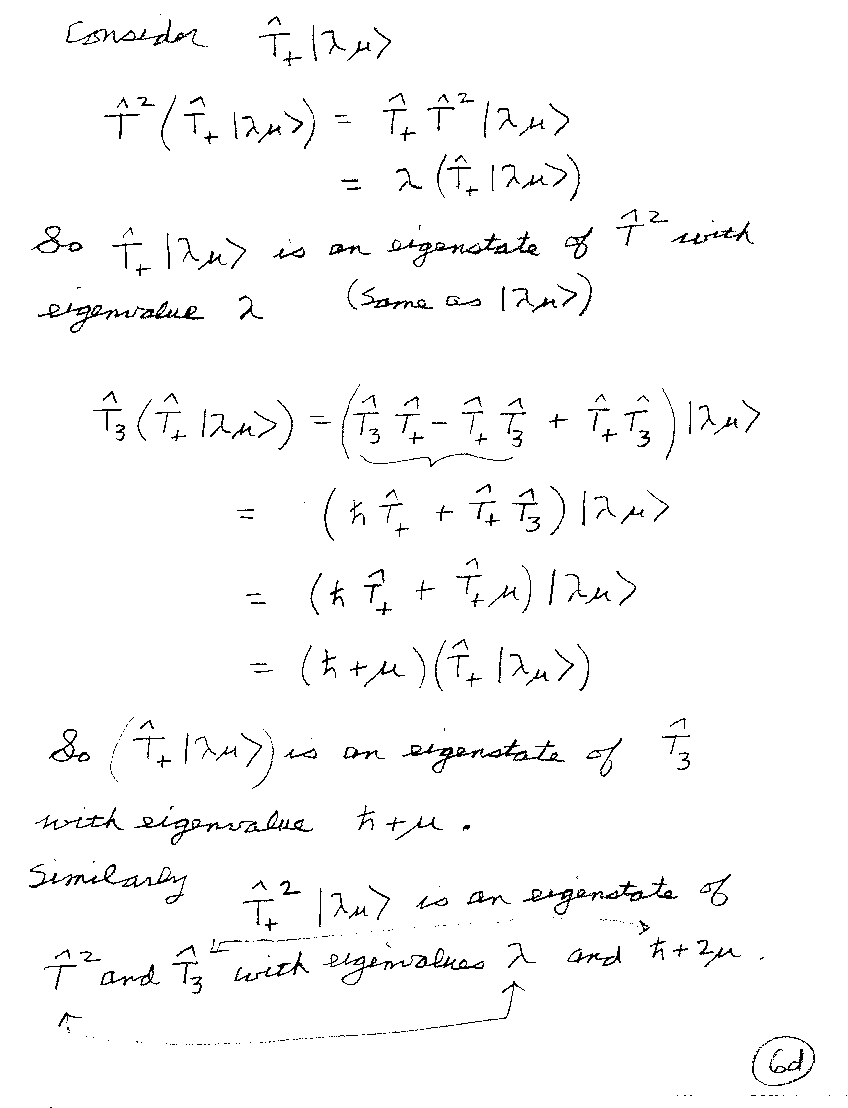 Consider T̂₊|λμ>
T̂²(T̂₊|λμ>) = T̂₊ T̂²|λμ>
= λ(T̂₊|λμ>)
So T̂₊|λμ> is an eigenstate of T̂² with
eigenvalue λ (same as |λμ>)
T̂₃(T̂₊|λμ>) = (T̂₃ T̂₊ - T̂₊ T̂₃ + T̂₊ T̂₃)|λμ>
= (ħ T̂₊ + T̂₊ T̂₃)|λμ>
= (ħ T̂₊ + T̂₊ μ)|λμ>
= (ħ + μ)(T̂₊|λμ>)
So (T̂₊|λμ>) is an eigenstate of T̂₃
with eigenvalue ħ + μ.
Similarly T̂₊²|λμ> is an eigenstate of
T̂² and T̂₃ with eigenvalues λ and ħ + 2μ.
6d